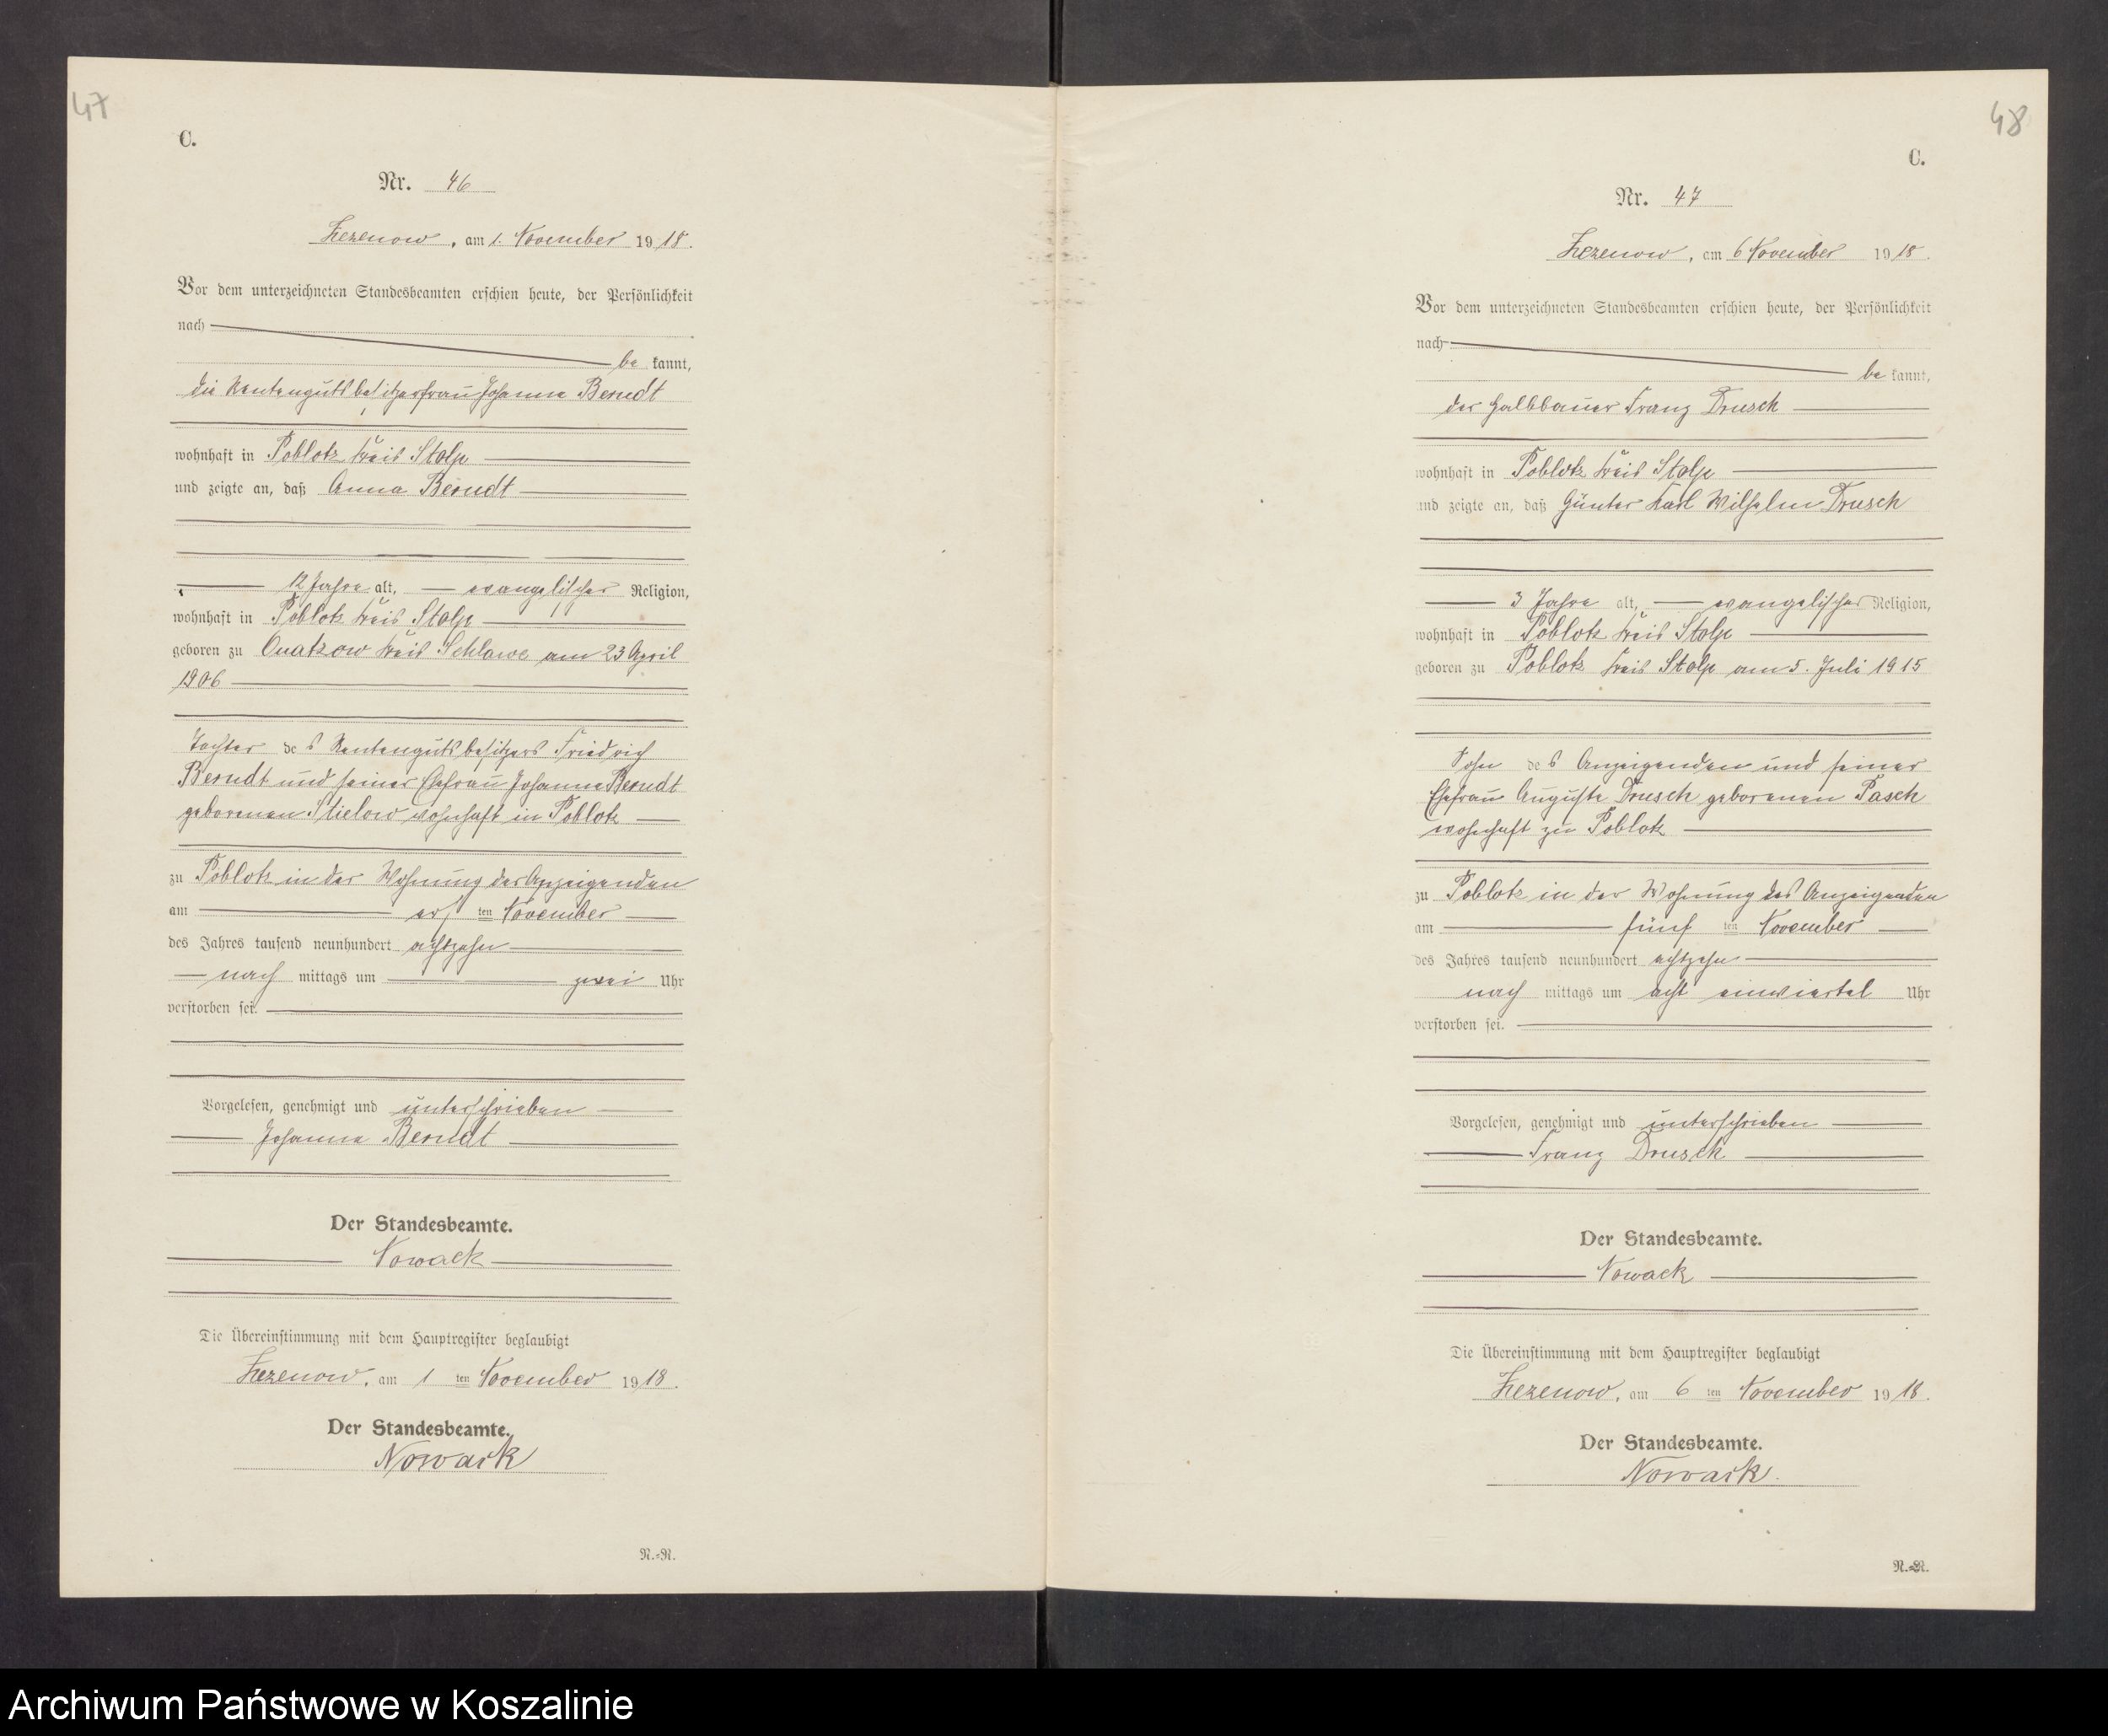 47
C.
Nr. 46
Zezenow, am 1. November 1918.
Vor dem unterzeichneten Standesbeamten erschien heute, der Persönlichkeit
nach
be kannt,
die Rentengutsbesitzerfrau Johanna Berndt
wohnhaft in Poblotz Kreis Stolp
und zeigte an, daß Anna Berndt
12 Jahre alt, evangelischer Religion,
wohnhaft in Poblotz Kreis Stolp
geboren zu Quatzow Kreis Schlawe am 23 April
1906
Tochter des Rentengutsbesitzers Friedrich
Berndt und seiner Ehefrau Johanna Berndt
geborenen Stielow wohnhaft in Poblotz
zu Poblotz in der Wohnung der Anzeigenden
am ersten November
des Jahres tausend neunhundert achtzehn
nach mittags um zwei Uhr
verstorben sei.
Vorgelesen, genehmigt und unterschrieben
Johanna Berndt
Der Standesbeamte.
Nowack
Die Übereinstimmung mit dem Hauptregister beglaubigt
Zezenow, am 1 ten November 1918.
Der Standesbeamte.
Nowack
R.-R.
48
C.
Nr. 47
Zezenow, am 6 November 1918.
Vor dem unterzeichneten Standesbeamten erschien heute, der Persönlichkeit
nach
be kannt,
der Halbbauer Franz Drusch
wohnhaft in Poblotz Kreis Stolp
und zeigte an, daß Günter Karl Wilhelm Drusch
3 Jahre alt, evangelischer Religion,
wohnhaft in Poblotz Kreis Stolp
geboren zu Poblotz Kreis Stolp am 5. Juli 1915
Sohn des Anzeigenden und seiner
Ehefrau Auguste Drusch geborenen Pasch
wohnhaft zu Poblotz
zu Poblotz in der Wohnung des Anzeigenden
am fünf ten November
des Jahres tausend neunhundert achtzehn
nach mittags um acht einviertel Uhr
verstorben sei.
Vorgelesen, genehmigt und unterschrieben
Franz Drusch
Der Standesbeamte.
Nowack
Die Übereinstimmung mit dem Hauptregister beglaubigt
Zezenow, am 6 ten November 1918.
Der Standesbeamte.
Nowack.
R.-R.
Archiwum Państwowe w Koszalinie